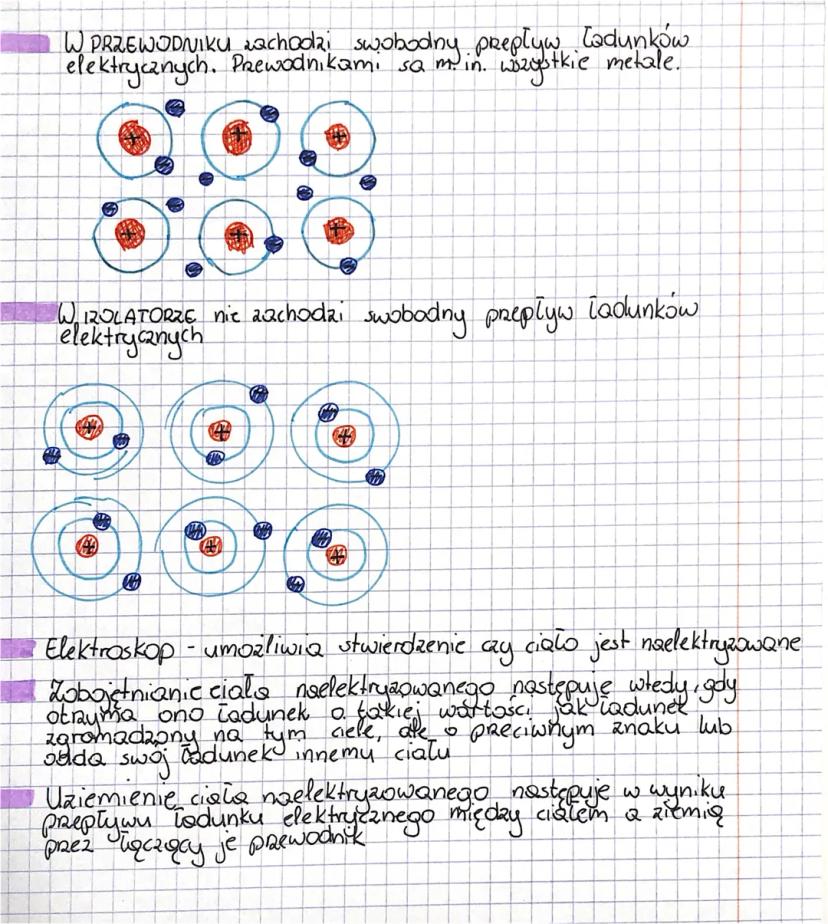 W PRZEWODNIKU zachodzi swobodny przepływ ładunków
elektrycznych. Przewodnikami są m. in. wszystkie metale.
W IZOLATORZE nie zachodzi swobodny przepływ ładunków
elektrycznych
Elektroskop - umożliwia stwierdzenie czy ciało jest naelektryzowane
Zobojętnianie ciała naelektryzowanego następuje wtedy, gdy
otrzyma ono ładunek o takiej wartości jak ładunek
zgromadzony na tym ciele, ale o przeciwnym znaku lub
odda swój ładunek innemu ciału
Uziemienie ciała naelektryzowanego następuje w wyniku
przepływu ładunku elektrycznego między ciałem a ziemią
przez łączący je przewodnik